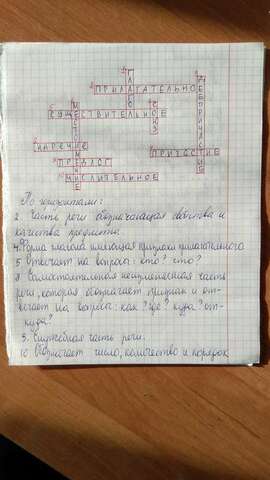 ГЛАГОЛ
ПРИЛАГАТЕЛЬНОЕ
ДЕЕПРИЧАСТИЕ
СУЩЕСТВИТЕЛЬНОЕ
МЕСТОИМЕНИЕ
СОЮЗ
НАРЕЧИЕ
ПРИЧАСТИЕ
ПРЕДЛОГ
ЧИСЛИТЕЛЬНОЕ
По горизонтали:
2 Часть речи обозначающая свойства и
качества предмета.
4. Форма глагола имеющая признаки прилагательного
5 Отвечает на вопросы: кто? что?
8 Самостоятельная неизменяемая часть
речи, которая обозначает признак и от-
вечает на вопросы: как? где? куда? от-
куда?
9. Служебная часть речи.
10 Обозначает число, количество и порядок